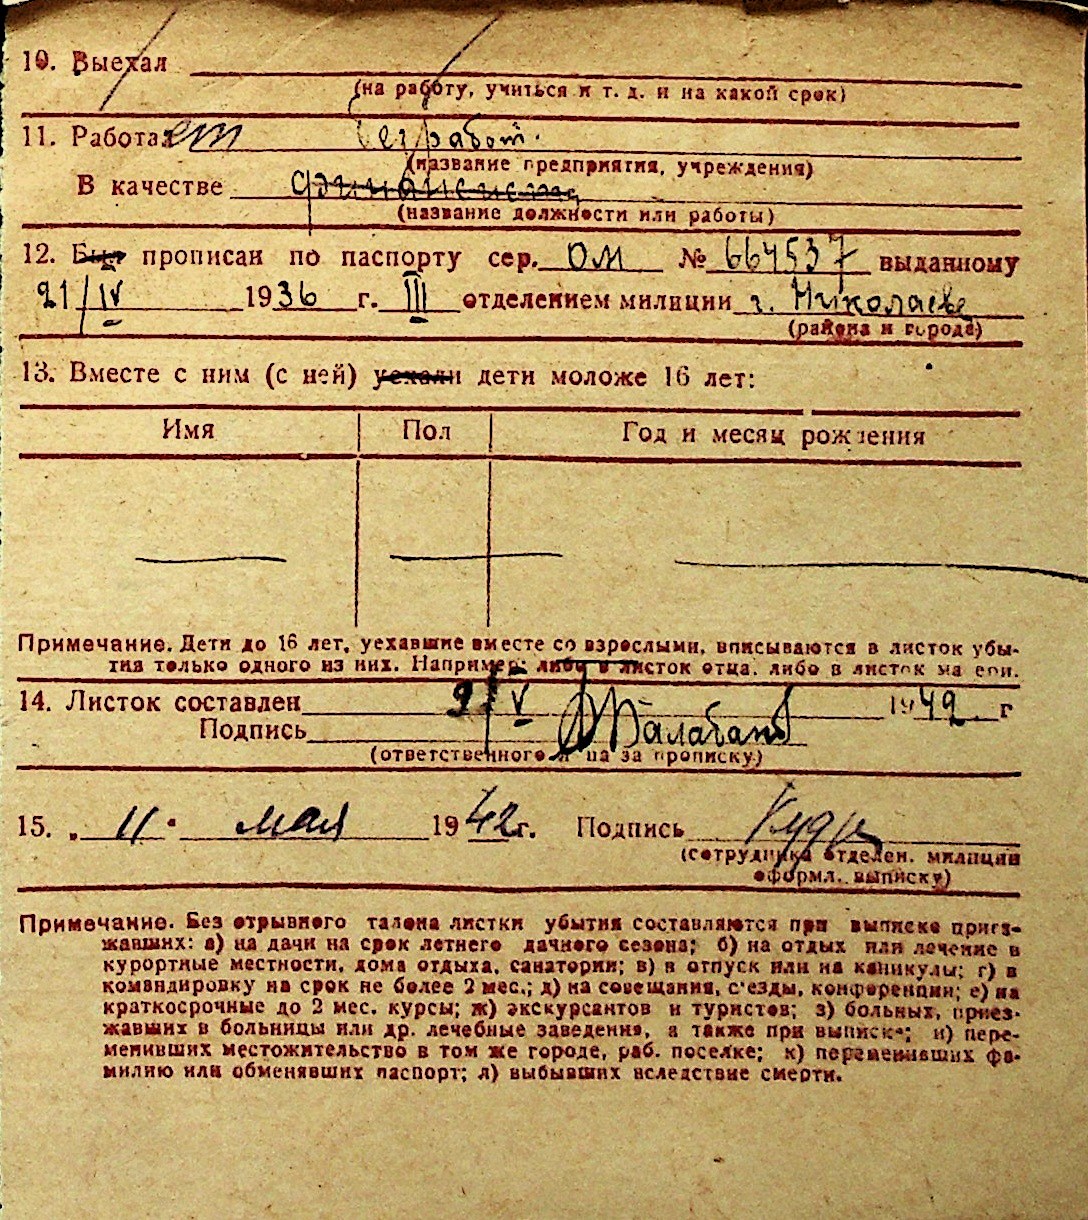 10. Выехал
(на работу, учиться и т. д. и на какой срок)
11. Работает безработ.
(название предприятия, учреждения)
В качестве
(название должности или работы)
12. Был прописан по паспорту сер. ОМ № 664537 выданному
21/IV 1936 г. III отделением милиции г. Николаеве
(района и города)
13. Вместе с ним (с ней) уехали дети моложе 16 лет:
Имя Пол Год и месяц рождения
Примечание. Дети до 16 лет, уехавшие вместе со взрослыми, вписываются в листок убы-
тия только одного из них. Например: либо в листок отца, либо в листок матери.
14. Листок составлен 9/V 1942 г
Подпись Балабан
(ответственного лица за прописку)
15. „ 11 " мая 1942 г. Подпись
(сотрудника отделен. милиции
оформл. выписку)
Примечание. Без отрывного талона листки убытия составляются при выписке приез-
жавших: а) на дачи на срок летнего дачного сезона; б) на отдых или лечение в
курортные местности, дома отдыха, санатории; в) в отпуск или на каникулы; г) в
командировку на срок не более 2 мес.; д) на совещания, с'езды, конференции; е) на
краткосрочные до 2 мес. курсы; ж) экскурсантов и туристов; з) больных, приез-
жавших в больницы или др. лечебные заведения, а также при выписке; и) пере-
менивших местожительство в том же городе, раб. поселке; к) переменивших фа-
милию или обменявших паспорт; л) выбывших вследствие смерти.